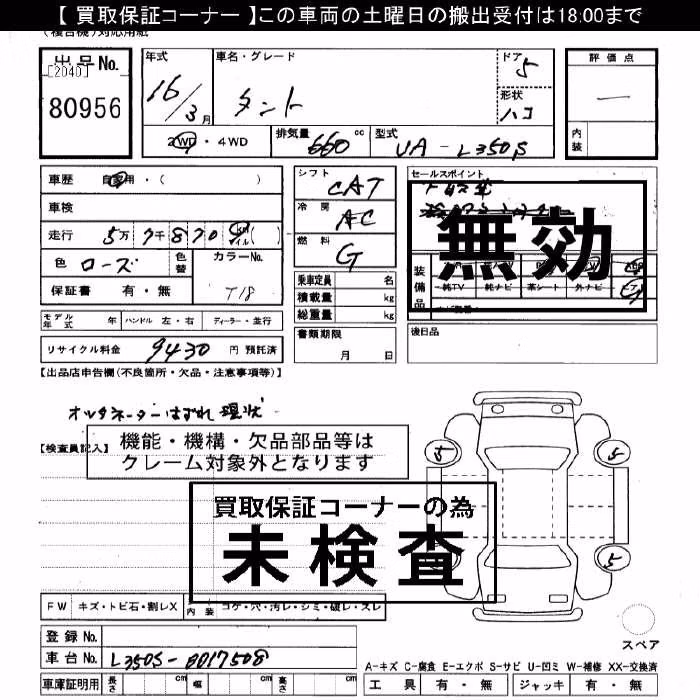 【 買取保証コーナー 】この車両の土曜日の搬出受付は18:00まで
(複合機)対応用紙
出品No.
[2040]
80956
年式
16/3月
車名・グレード
タント
ドア
5
形状
ハコ
評価点
一
内装
2WD・4WD
排気量 660 cc
型式 UA-L350S
車歴 自家用・( )
車検
走行 5万7千870
色 ローズ
色替
カラーNo.
T18
保証書 有・無
シフト CAT
冷房 AC
燃料 G
乗車定員 名
積載量 kg
総重量 kg
セールスポイント
無効
装備品
純TV 純ナビ 革シート 外ナビ
モデル年式 年 ハンドル 左・右 ディーラー・並行
リサイクル料金 9430 円 預託済
書類期限
月 日
後日品
【出品店申告欄(不良箇所・欠品・注意事項等)】
オルタネーターはずれ 現状
【検査員記入】
機能・機構・欠品部品等は
クレーム対象外となります
買取保証コーナーの為
未検査
5 5
5
FW キズ・トビ石・割レX 内装 コゲ・穴・汚レ・シミ・破レ・スレ
スペア
登録No.
車台No. L350S-0017508
A-キズ C-腐食 E-エクボ S-サビ U-凹ミ W-補修 XX-交換済
車庫証明用 長さ cm 幅 cm 高さ cm
工具 有・無 ジャッキ 有・無